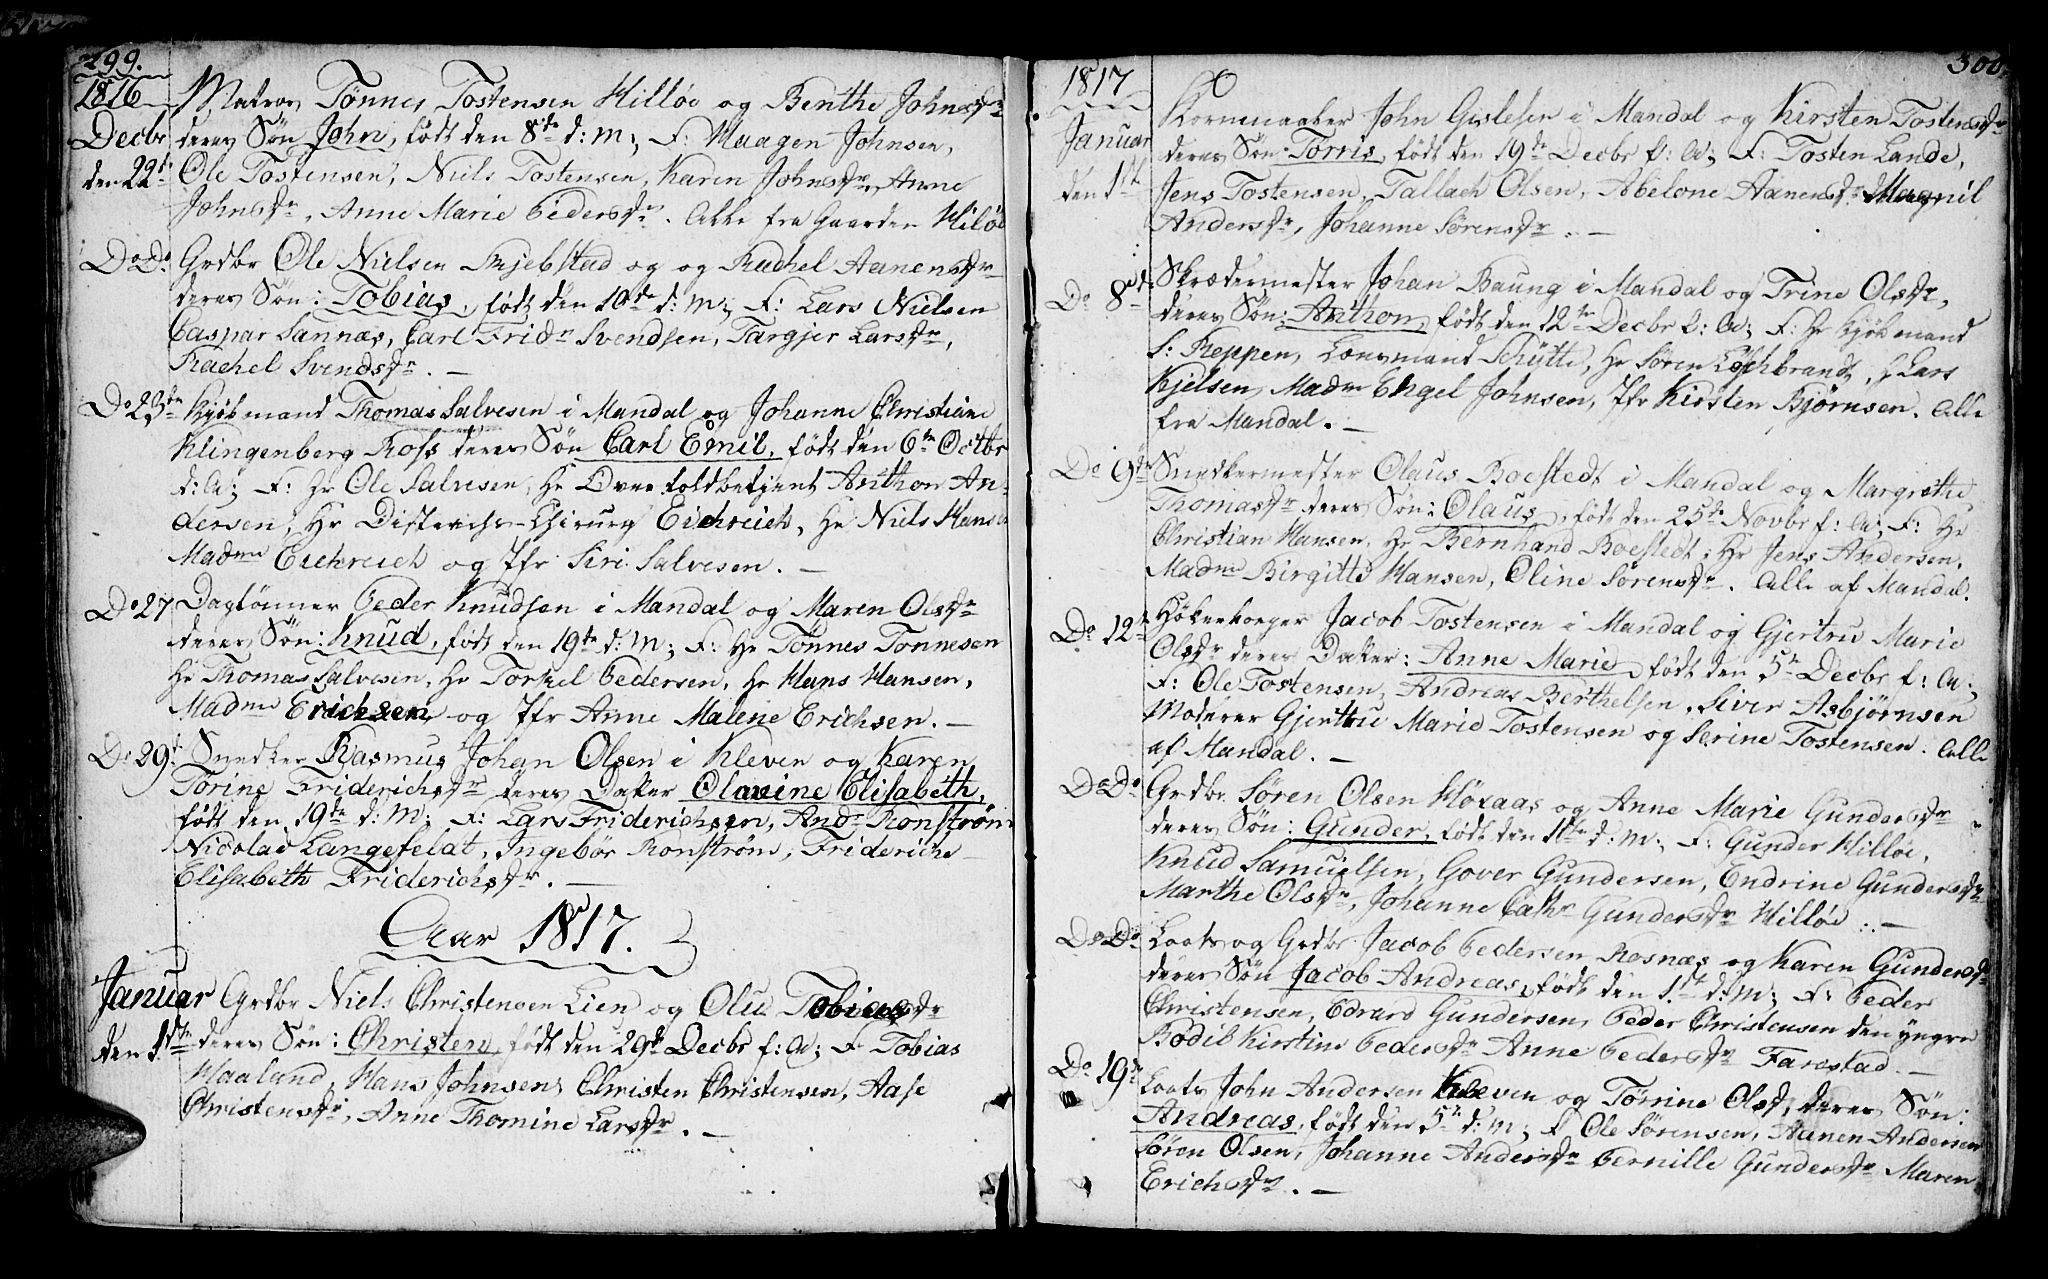 299.
1816
Decbr
den 22de
Matros Tønnes Tostensen Hilløe og Benthe Johnsdr
deres Søn John, født den 8de d: M; F: Haagen Johnsen,
Ole Tostensen, Niels Tostensen, Karen Johnsdr, Anne
Johnsdr, Anne Marie Pedersdr. Alle fra Gaarden Hiløe
Do Do Grdbr Ole Nielsen Skjebstad og og Rachel Aanensdr
deres Søn: Tobias, født den 10de d: M; F: Lars Nielsen
Caspar Sannæs, Carl Fridr Svendsen, Targjer Larsdr,
Rachel Svendsdr. —
Do 23de Kjøbmand Thomas Salvesen i Mandal og Johanne Christiane
Klingenberg Ross deres Søn Carl Emil, født den 6te Octbr
d: A; F: Hr Ole Salvesen, Hr Over toldbetjent Anthon An-
dersen, Hr Districhs-Chirurg Eichreich, Hr Niels Hansen
Madme Eichreich og Jfr Siri Salvesen. —
Do 27 Daglønner Peder Knudsen i Mandal og Maren Olsdr
deres Søn: Knud, født den 19de d: M; F: Hr Tønnes Tønnesen
Hr Thomas Salvesen, Hr Torkel Pedersen, Hr Hans Hansen,
Madme Erichsen og Jfr Anne Malene Erichsen. —
Do 29d Snedker Rasmus Johan Olsen i Kleven og Karen
Torine Friderichsdr deres Datter Olavine Elisabeth,
født den 19de d: M; F: Lars Friderichsen, Andr Ronstrøm
Nicolai Langefeldt, Ingebør Ronstrøm, Frideriche
Elisabeth Friderichsdr. —
Aar 1817.
Januar
den 1ste
Grdbr Niels Christensen Lien og Olu Tobiasdr
deres Søn: Christen, født den 29de Decbr f: A; F Tobias
Haaland, Hans Johnsen, Christen Christensen, Aase
Christensdr, Anne Thomine Larsdr. —
300.
1817
Januar
den 1ste
Kornmaaler John Gislesen i Mandal og Kirsten Tostensdr
deres Søn: Torris, født den 19de Decbr f: A; F: Tosten Lande,
Jens Tostensen, Tallach Olsen, Abelone Aanensdr Magnil
Andersdr, Johanne Sørensdr. —
Do 8de Skrædermester Johan Baung i Mandal og Trine Olsdr,
deres Søn: Anthon, født den 12te Decbr f: A; F: Hr Kjøbmand
S: Reppen, Lensmand Schütte, Hr Søren Lochbrandt, H Lars
Kjelsen, Madme Engel Johnsen, Jfr Kirsten Bjørnsen. Alle
fra Mandal. —
Do 9de Snedkermester Olaus Boestedt i Mandal og Margrethe
Thomasdr deres Søn: Olaus, født den 25de Novbr f: A; F: Hr
Christian Hansen, Hr Bernhand Boestedt, Hr Jens Andersen,
Madme Birgitte Hansen, Oline Sørensdr. Alle af Mandal.
Do 12te Høkerborger Jacob Tostensen i Mandal og Gjertru Marie
Olsdr deres Datter: Anne Marie, født den 5te Decbr f: A;
F: Ole Tostensen, Andreas Berthelsen, Siver Asbjørnsen
Moderer Gjertru Marie Tostensen og Serine Tostensen. Alle
af Mandal. —
Do Do Grdbr Søren Olsen Høxaas og Anne Marie Gundersdr
deres Søn: Gunder, født den 1ste d: M; F: Gunder Hilløe,
Knud Samuelsen, Gover Gundersen, Endrine Gundersdr
Marthe Olsdr, Johanne Cathr Gundersdr Hilløe. —
Do Do Loots og Grdbr Jacob Pedersen Rosnæs og Karen Gundersdr
deres Søn Jacob Andreas, født den 1ste d: M; F: Peder
Christensen, Edvard Gundersen, Peder Christensen den yngre
Bodil Kirstine Pedersdr Anne Pedersdr Farestad. —
Do 19de Loots John Andersen Kleven og Torine Olsd, deres Søn:
Andreas, født den 5te d: M; F Ole Sørensen, Aanen Andersen
Søren Olsen, Johanne Andersdr Pernille Gundersdr Maren
Erichsdr. —